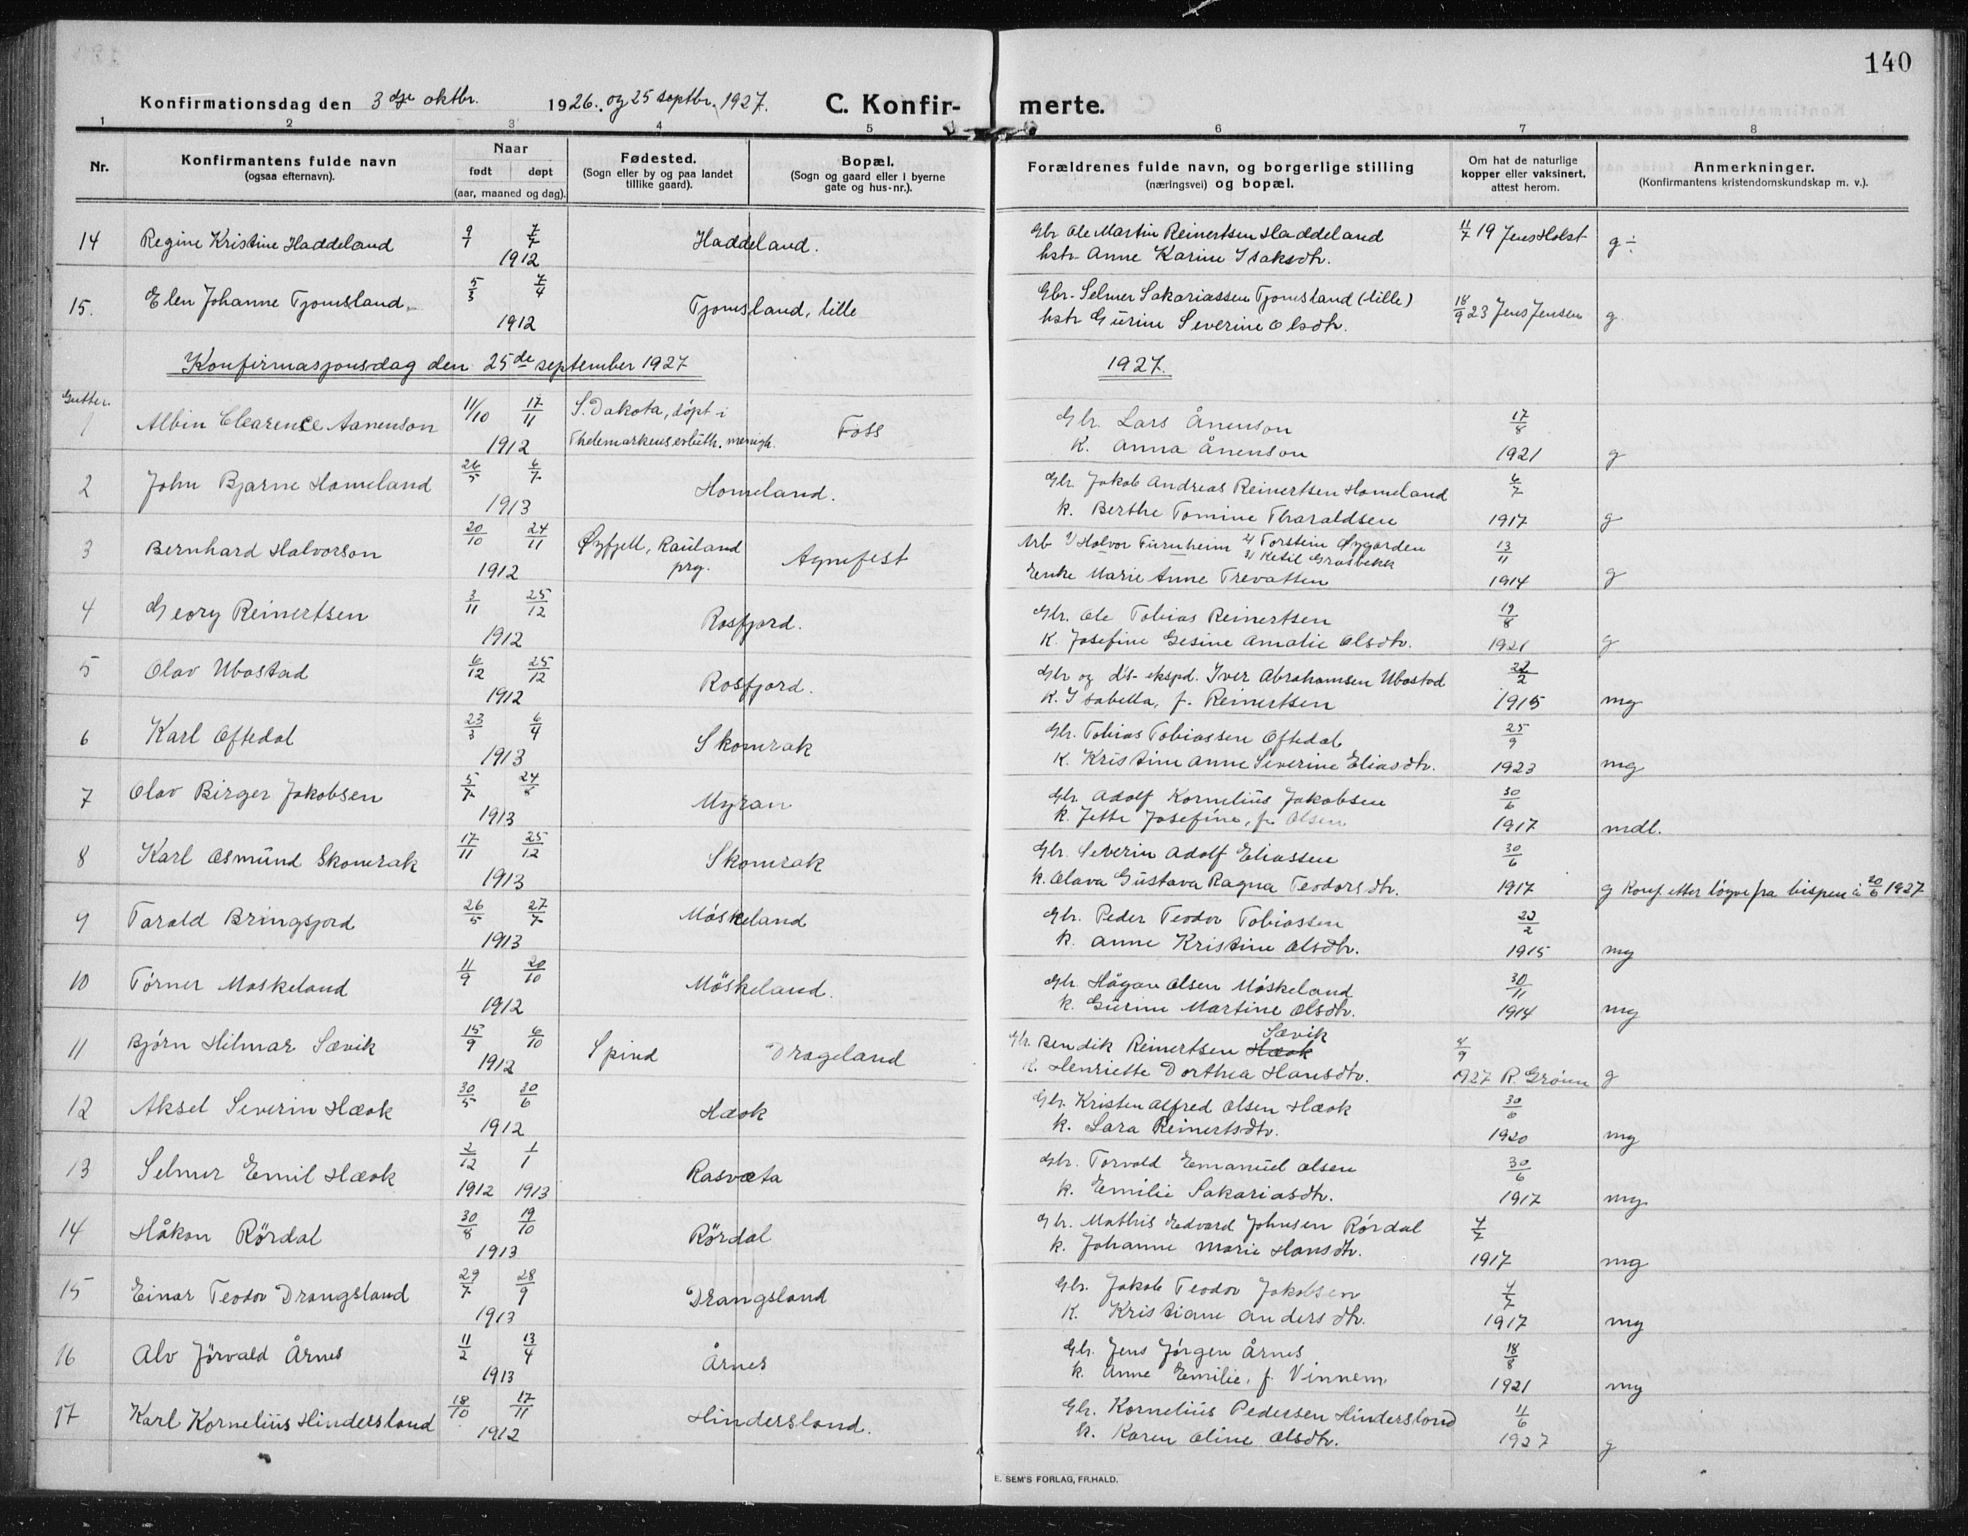 140
Konfirmationsdag den 3dje oktbr. 1926. og 25 septbr. 1927. C. Konfir- merte.
1 2 3 4 5 6 7 8
Nr.
Konfirmantens fulde navn
(ogsaa efternavn).
Naar
født døpt
(aar, maaned og dag).
Fødested.
(Sogn eller by og paa landet
tillike gaard).
Bopæl.
(Sogn og gaard eller i byerne
gate og hus-nr.).
Forældrenes fulde navn, og borgerlige stilling
(næringsvei) og bopæl.
Om hat de naturlige
kopper eller vaksinert,
attest herom.
Anmerkninger.
(Konfirmantens kristendomskundskap m. v.).
14 Regine Kristine Haddeland 9/1 7/7 1912 Haddeland. Gbr Ole Martin Reinertsen Haddeland 11/7 19 Jens Holst g ÷
hstr Anne Karine Isaksdtr.
15. Elen Johanne Tjomsland 5/3 7/4 1912 Tjomsland, lille Gbr. Selmer Sakariassen Tjomsland (lille) 18/9 23 Jens Jensen g
hstr Gurine Severine Olsdtr.
Konfirmasjonsdag den 25de september 1927 1927.
Gutter.
1 Albin Clearence Aanenson 11/10 17/11 1912 S. Dakota, døpt i Foss Gbr. Lars Ånenson 17/8
Thelemarkens evluth. menigh. K. Anna Ånenson 1921 g
2 John Bjarne Homeland 26/5 6/7 1913 Homeland. Gbr. Jakob Andreas Reinertsen Homeland 6/7
k. Berthe Tomine Tharaldsen 1917 g
3 Bernhard Halvorson 20/10 24/11 1912 Øyfjell, Rauland Agnefest Arb 1/ Halvor Furuheim 2/ Torstein Øygarden 13/11
prg. 3/ Ketil Grasbekk
Enke Marie Anne Trevatten 1914 g
4 Georg Reinertsen 3/11 25/12 1912 Rosfjord. Gbr. Ole Tobias Reinertsen 19/8
K. Josefine Gesine Amalie Olsdtr. 1921 g
5 Olav Ubostad 6/12 25/12 1912 Rosfjord. Gbr og d/s- ekspd. Iver Abrahamsen Ubostad 22/2
K. Isabella, f. Reinertsen 1915 mg
6 Karl Oftedal 23/3 6/4 1913 Skomrak Gbr. Tobias Tobiassen Oftedal 25/9
K. Kristine Anne Severine Eliasdtr. 1923 mg
7 Olav Birger Jakobsen 5/7 24/8 1913 Myran Gbr. Adolf Kornelius Jakobsen 30/6
k. Jette Josefine, f. Olsen 1917 mdl.
8 Karl Osmund Skomrak 17/11 25/12 1913 Skomrak Gbr. Severin Adolf Eliassen 30/6
k. Olava Gustava Ragna Teodorsdtr. 1917 g Konf. etter løyve fra bispen i 20/6 1927
9 Tarald Bringsjord 26/5 27/7 1913 Møskeland Gbr. Peder Teodor Tobiassen 22/2
k. Anne Kristine Olsdtr. 1915 mg
10 Tørner Møskeland 11/9 20/10 1912 Møskeland. Gbr. Hågan Olsen Møskeland 30/11
k. Gurine Martine Olsdtr. 1914 mg
11 Bjørn Hilmar Sævik 15/9 6/10 1912 Spind Drageland Gbr. Bendik Reinertsen Hæok Sævik 8/9
K. Henriette Dorthea Hansdtr. 1927 R. Grönn g
12 Aksel Severin Hæok 30/5 30/6 1912 Hæok Gbr. Kristen Alfred Olsen Hæok 30/6
k. Sara Reinertsdtr. 1920 mg
13 Selmer Emil Hæok 2/12 1912 1/1 1913 Rasvæta Gbr. Torvald Emanuel Olsen 30/6
k. Emilie Sakariasdtr. 1917 mg
14 Håkon Rördal 30/8 19/10 1913 Rördal Gbr. Mathis Edvard Johnsen Rördal 4/7
k. Johanne Marie Hansdtr. 1917 mg
15 Einar Teodor Drangsland 29/7 28/9 1913 Drangsland Gbr. Jakob Teodor Jakobsen 4/7
K. Kristiane Andersdtr. 1917 mg
16 Alv Jörvald Årnes 11/2 13/4 1913 Årnes Gbr. Jens Jörgen Årnes 18/8
k. Anne Emilie, f. Vinnem 1921 mg
17 Karl Kornelius Hindersland 18/10 17/11 1912 Hindersland. Gbr. Kornelius Pedersen Hindersland 11/6
k. Karen Oline Olsdtr. 1927 g
E. SEM'S FORLAG, FR.HALD.